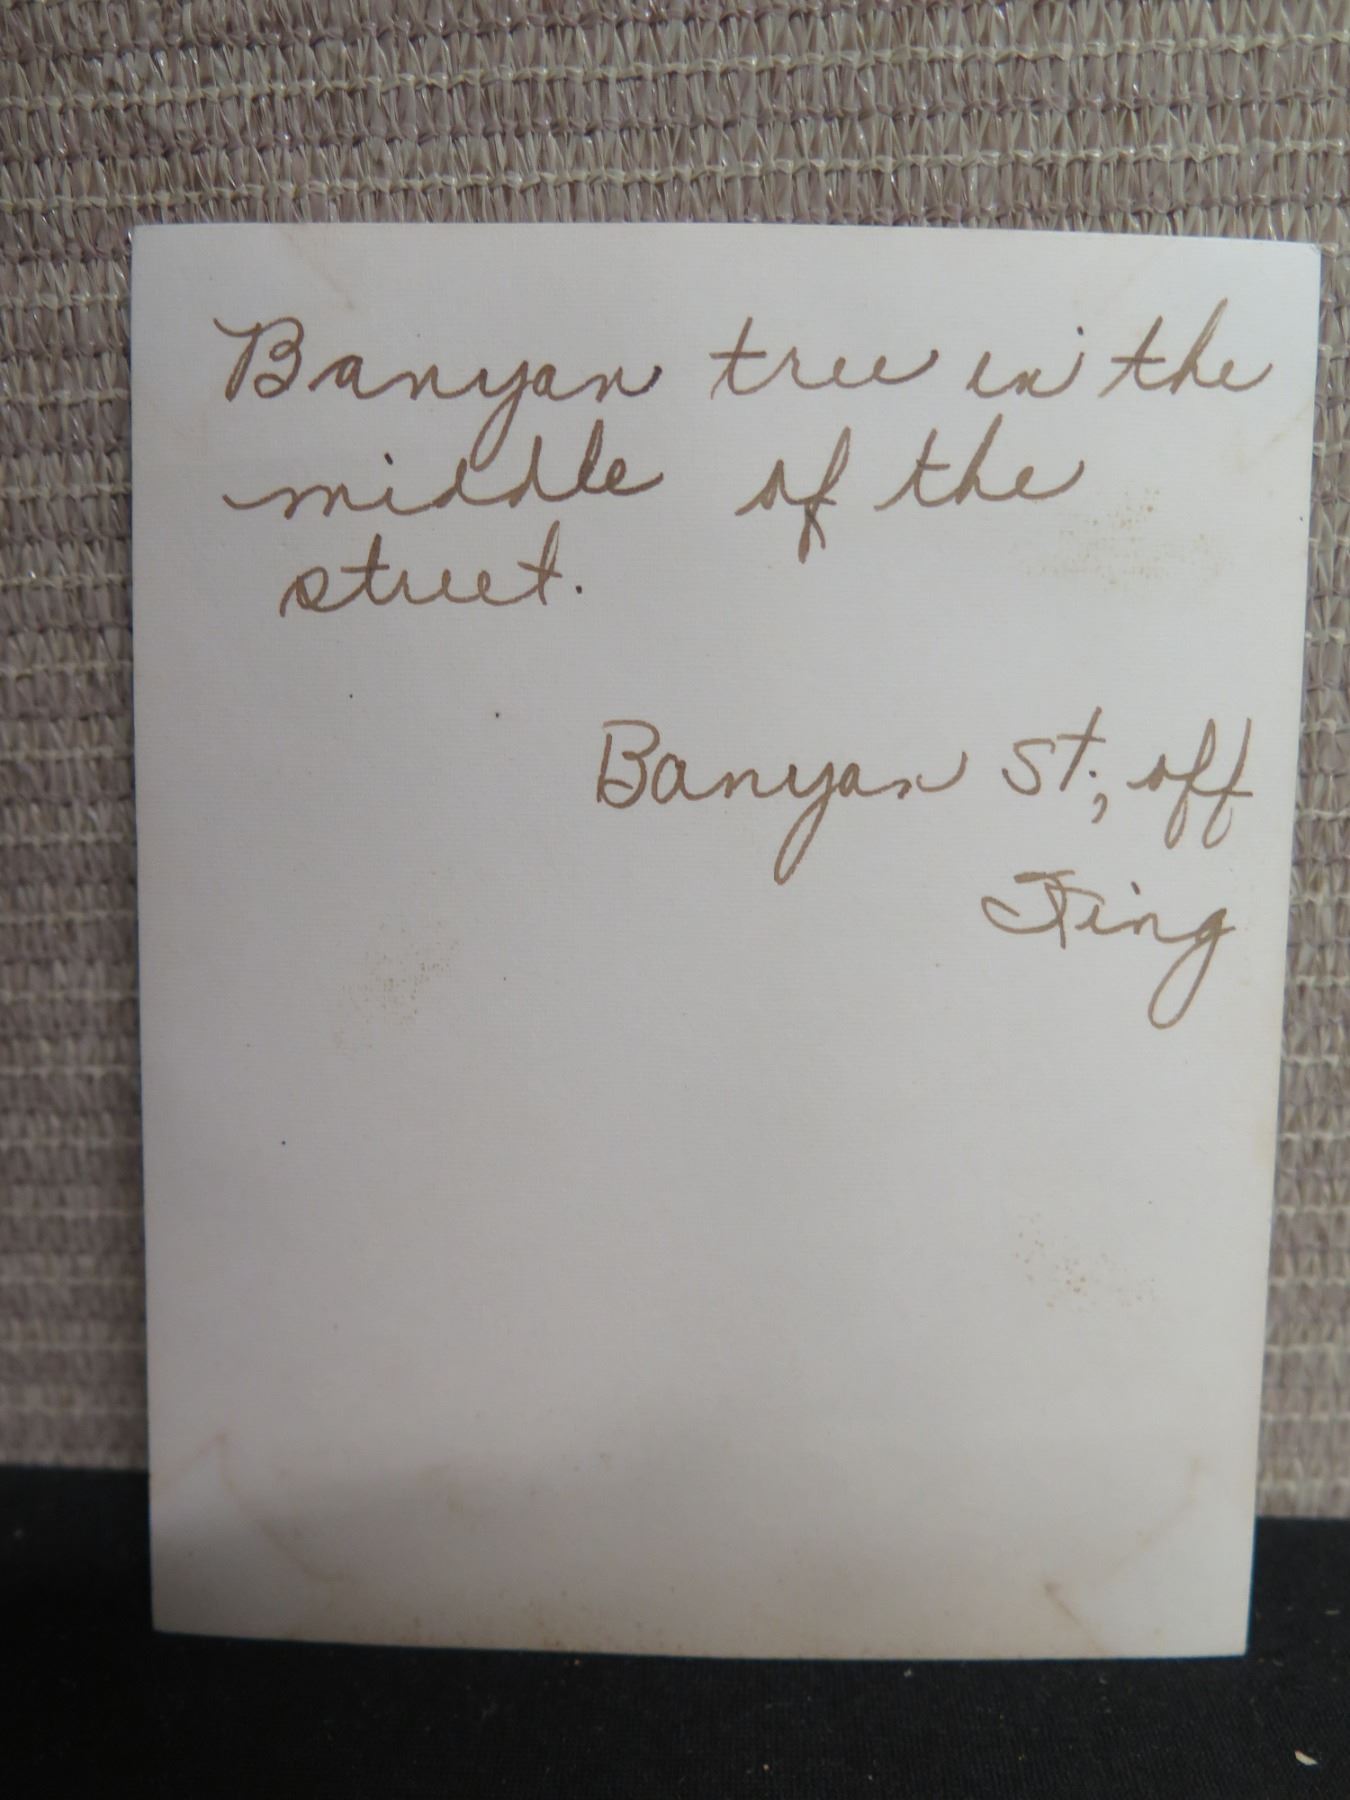 Banyan tree in the
middle of the
street.
Banyan St., off
King